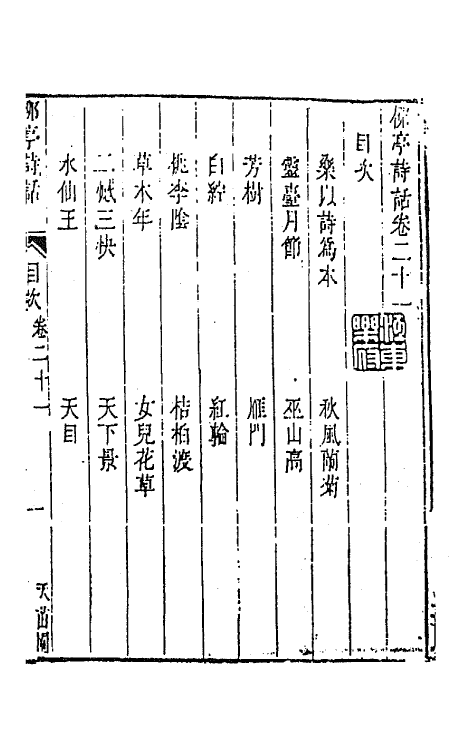 柳亭詩話卷二十一
目次
樂以詩為本
秋風蘭菊
盤臺月節
巫山高
芳樹
雁門
白紵
紅輪
桃李陰
桔柏渡
草木年
女兒花草
二慼三快
天下景
水仙王
天目
柳亭詩話
目次
卷二十一
一
天茁閣